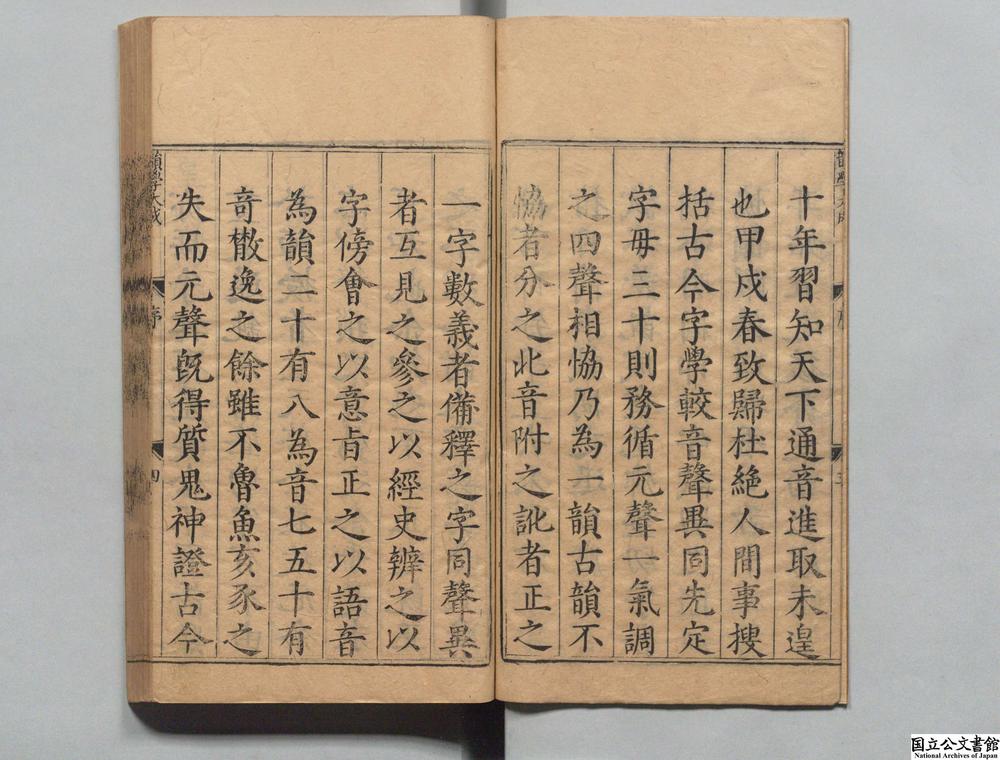 十年習知天下通音進取未遑
也甲戍春致歸杜絶人間事搜
括古今字學較音聲異同先定
字毋三十則務循元聲一氣調
之四聲相恊乃為一韻古韻不
恊者分之此音附之訛者正之
韻學大成
序
四
一字數義者備釋之字同聲異
者互見之參之以經史辨之以
字傍會之以意㫖正之以語音
為韻二十有八為音七五十有
奇㪚逸之餘雖不魯魚亥豕之
失而元聲旣得質鬼神證古今
国立公文書館
National Archives of Japan